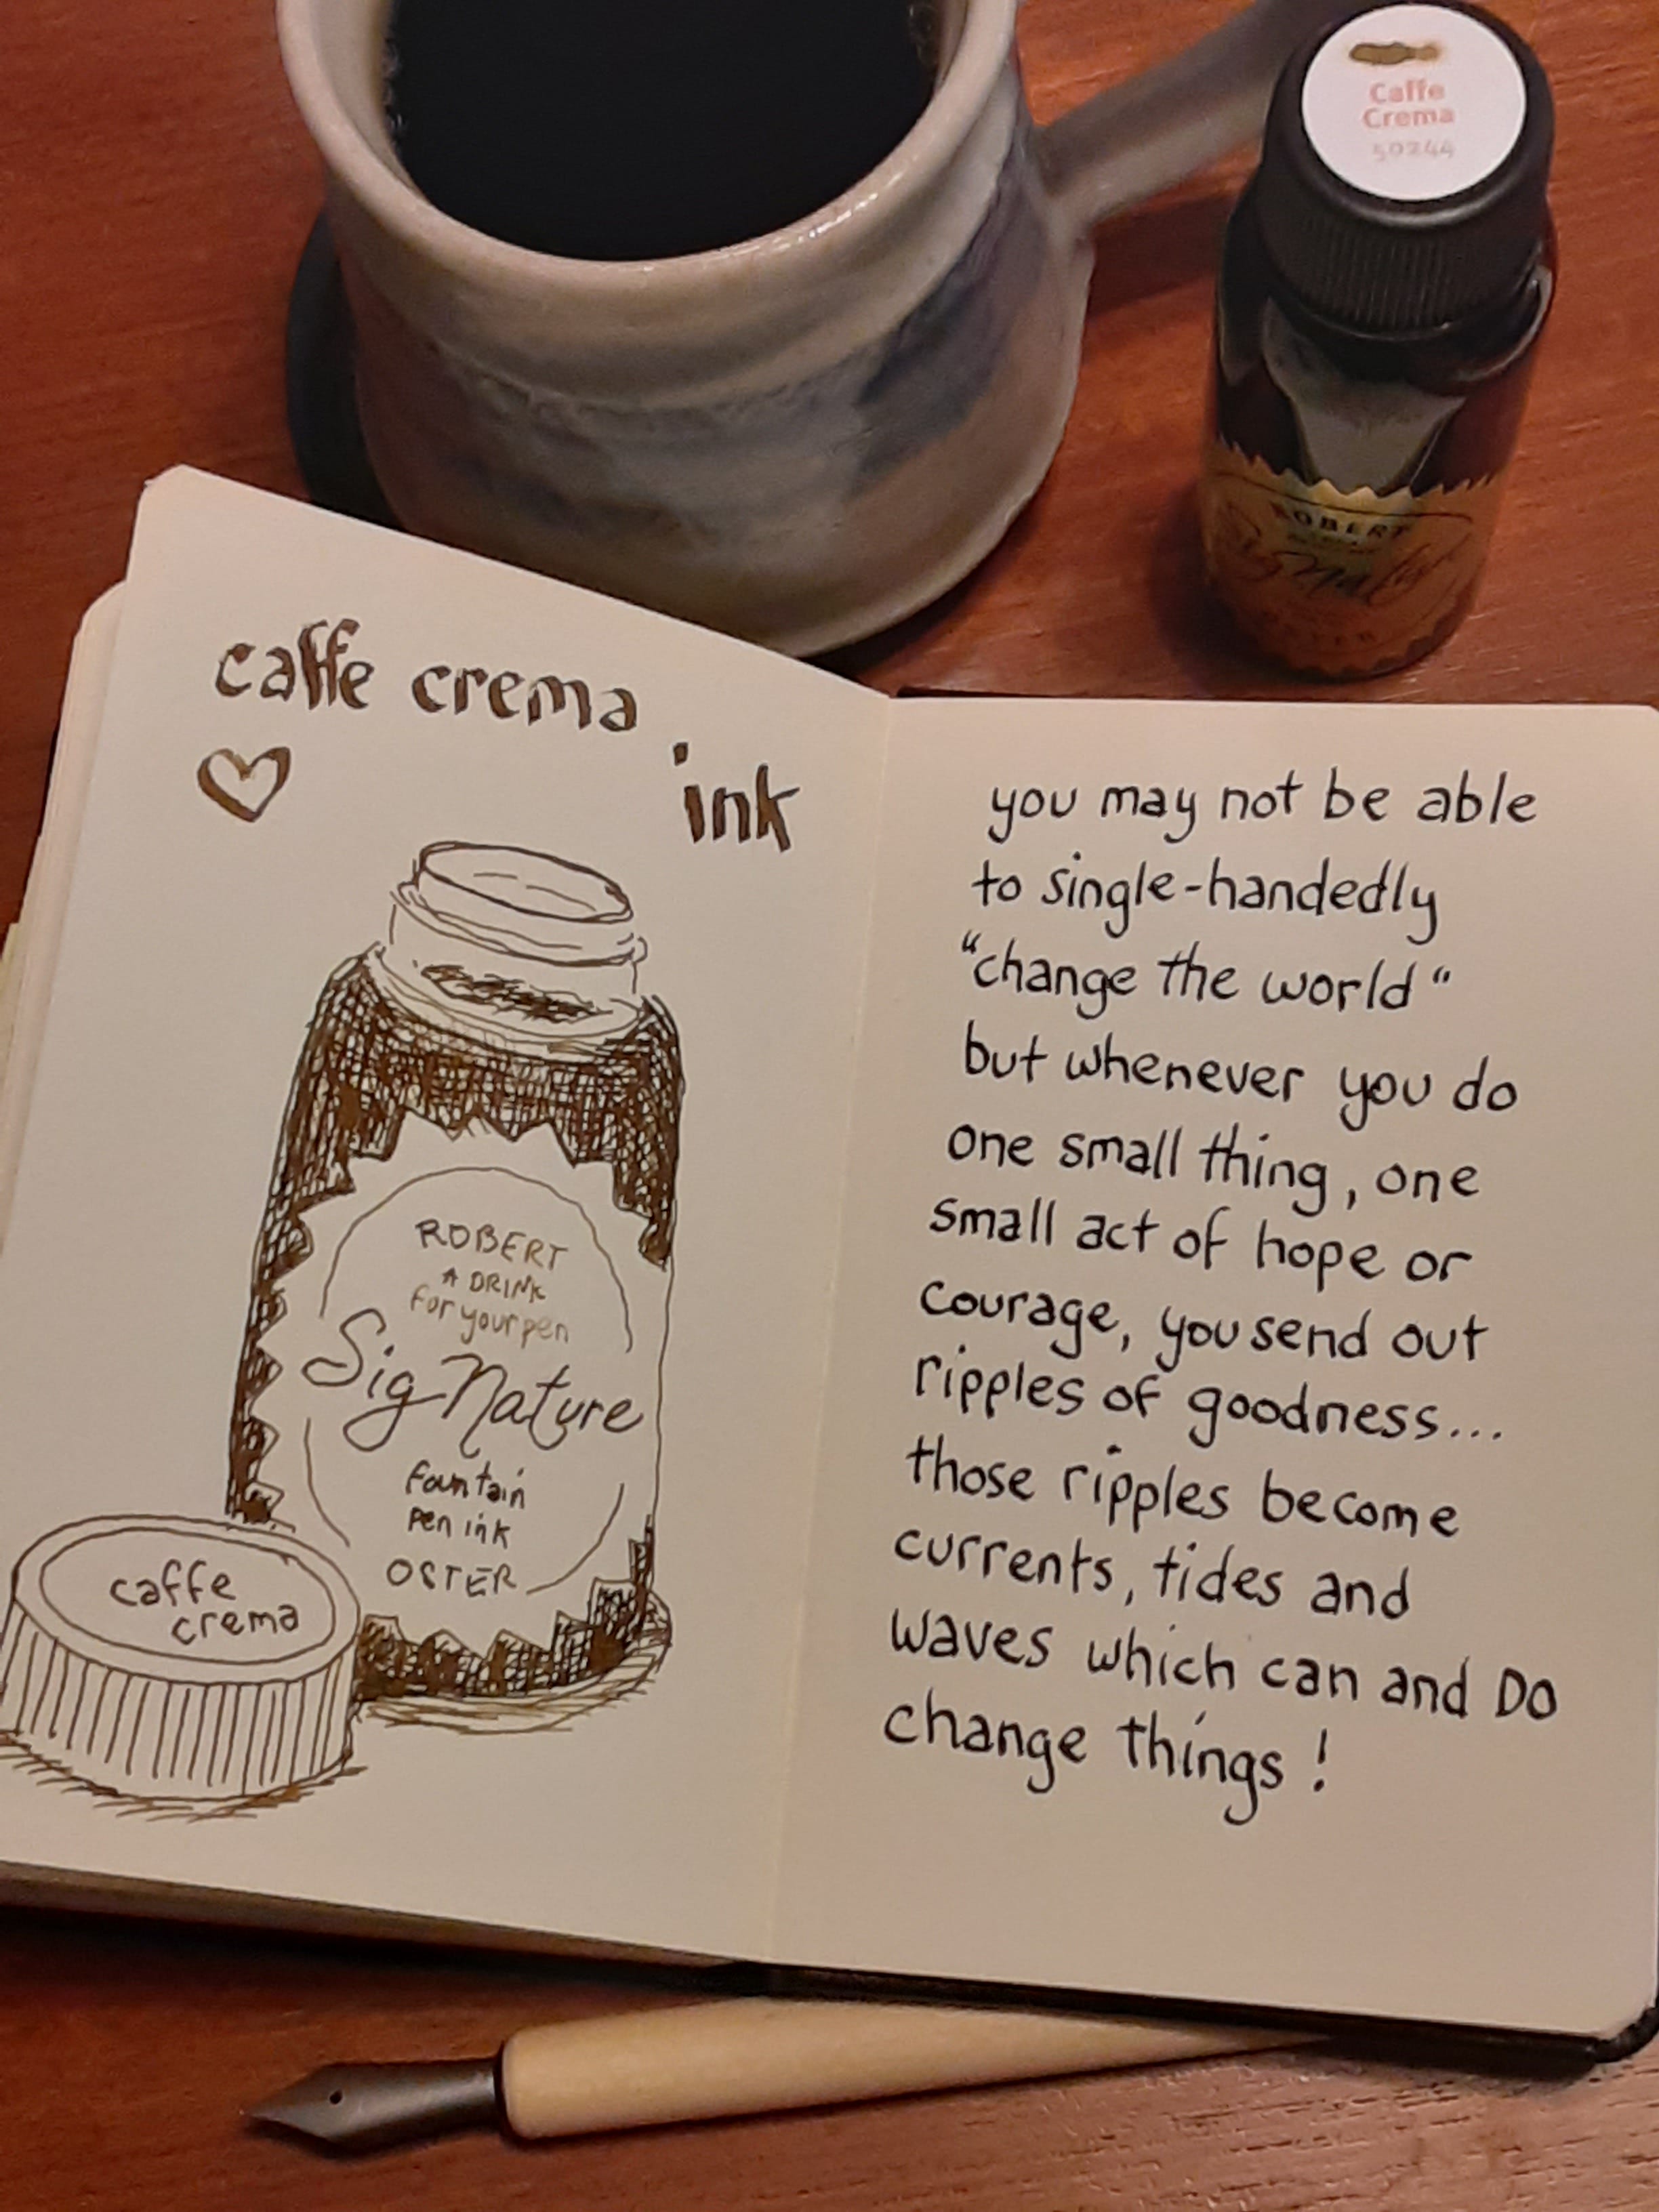 Caffe
Crema
50244
ROBERT
caffe crema
ink
ROBERT
A DRINK
for your pen
SigNature
fountain
pen ink
OSTER
caffe
crema
you may not be able
to single-handedly
“change the world“
but whenever you do
one small thing, one
small act of hope or
courage, you send out
ripples of goodness...
those ripples become
currents, tides and
waves which can and DO
change things!